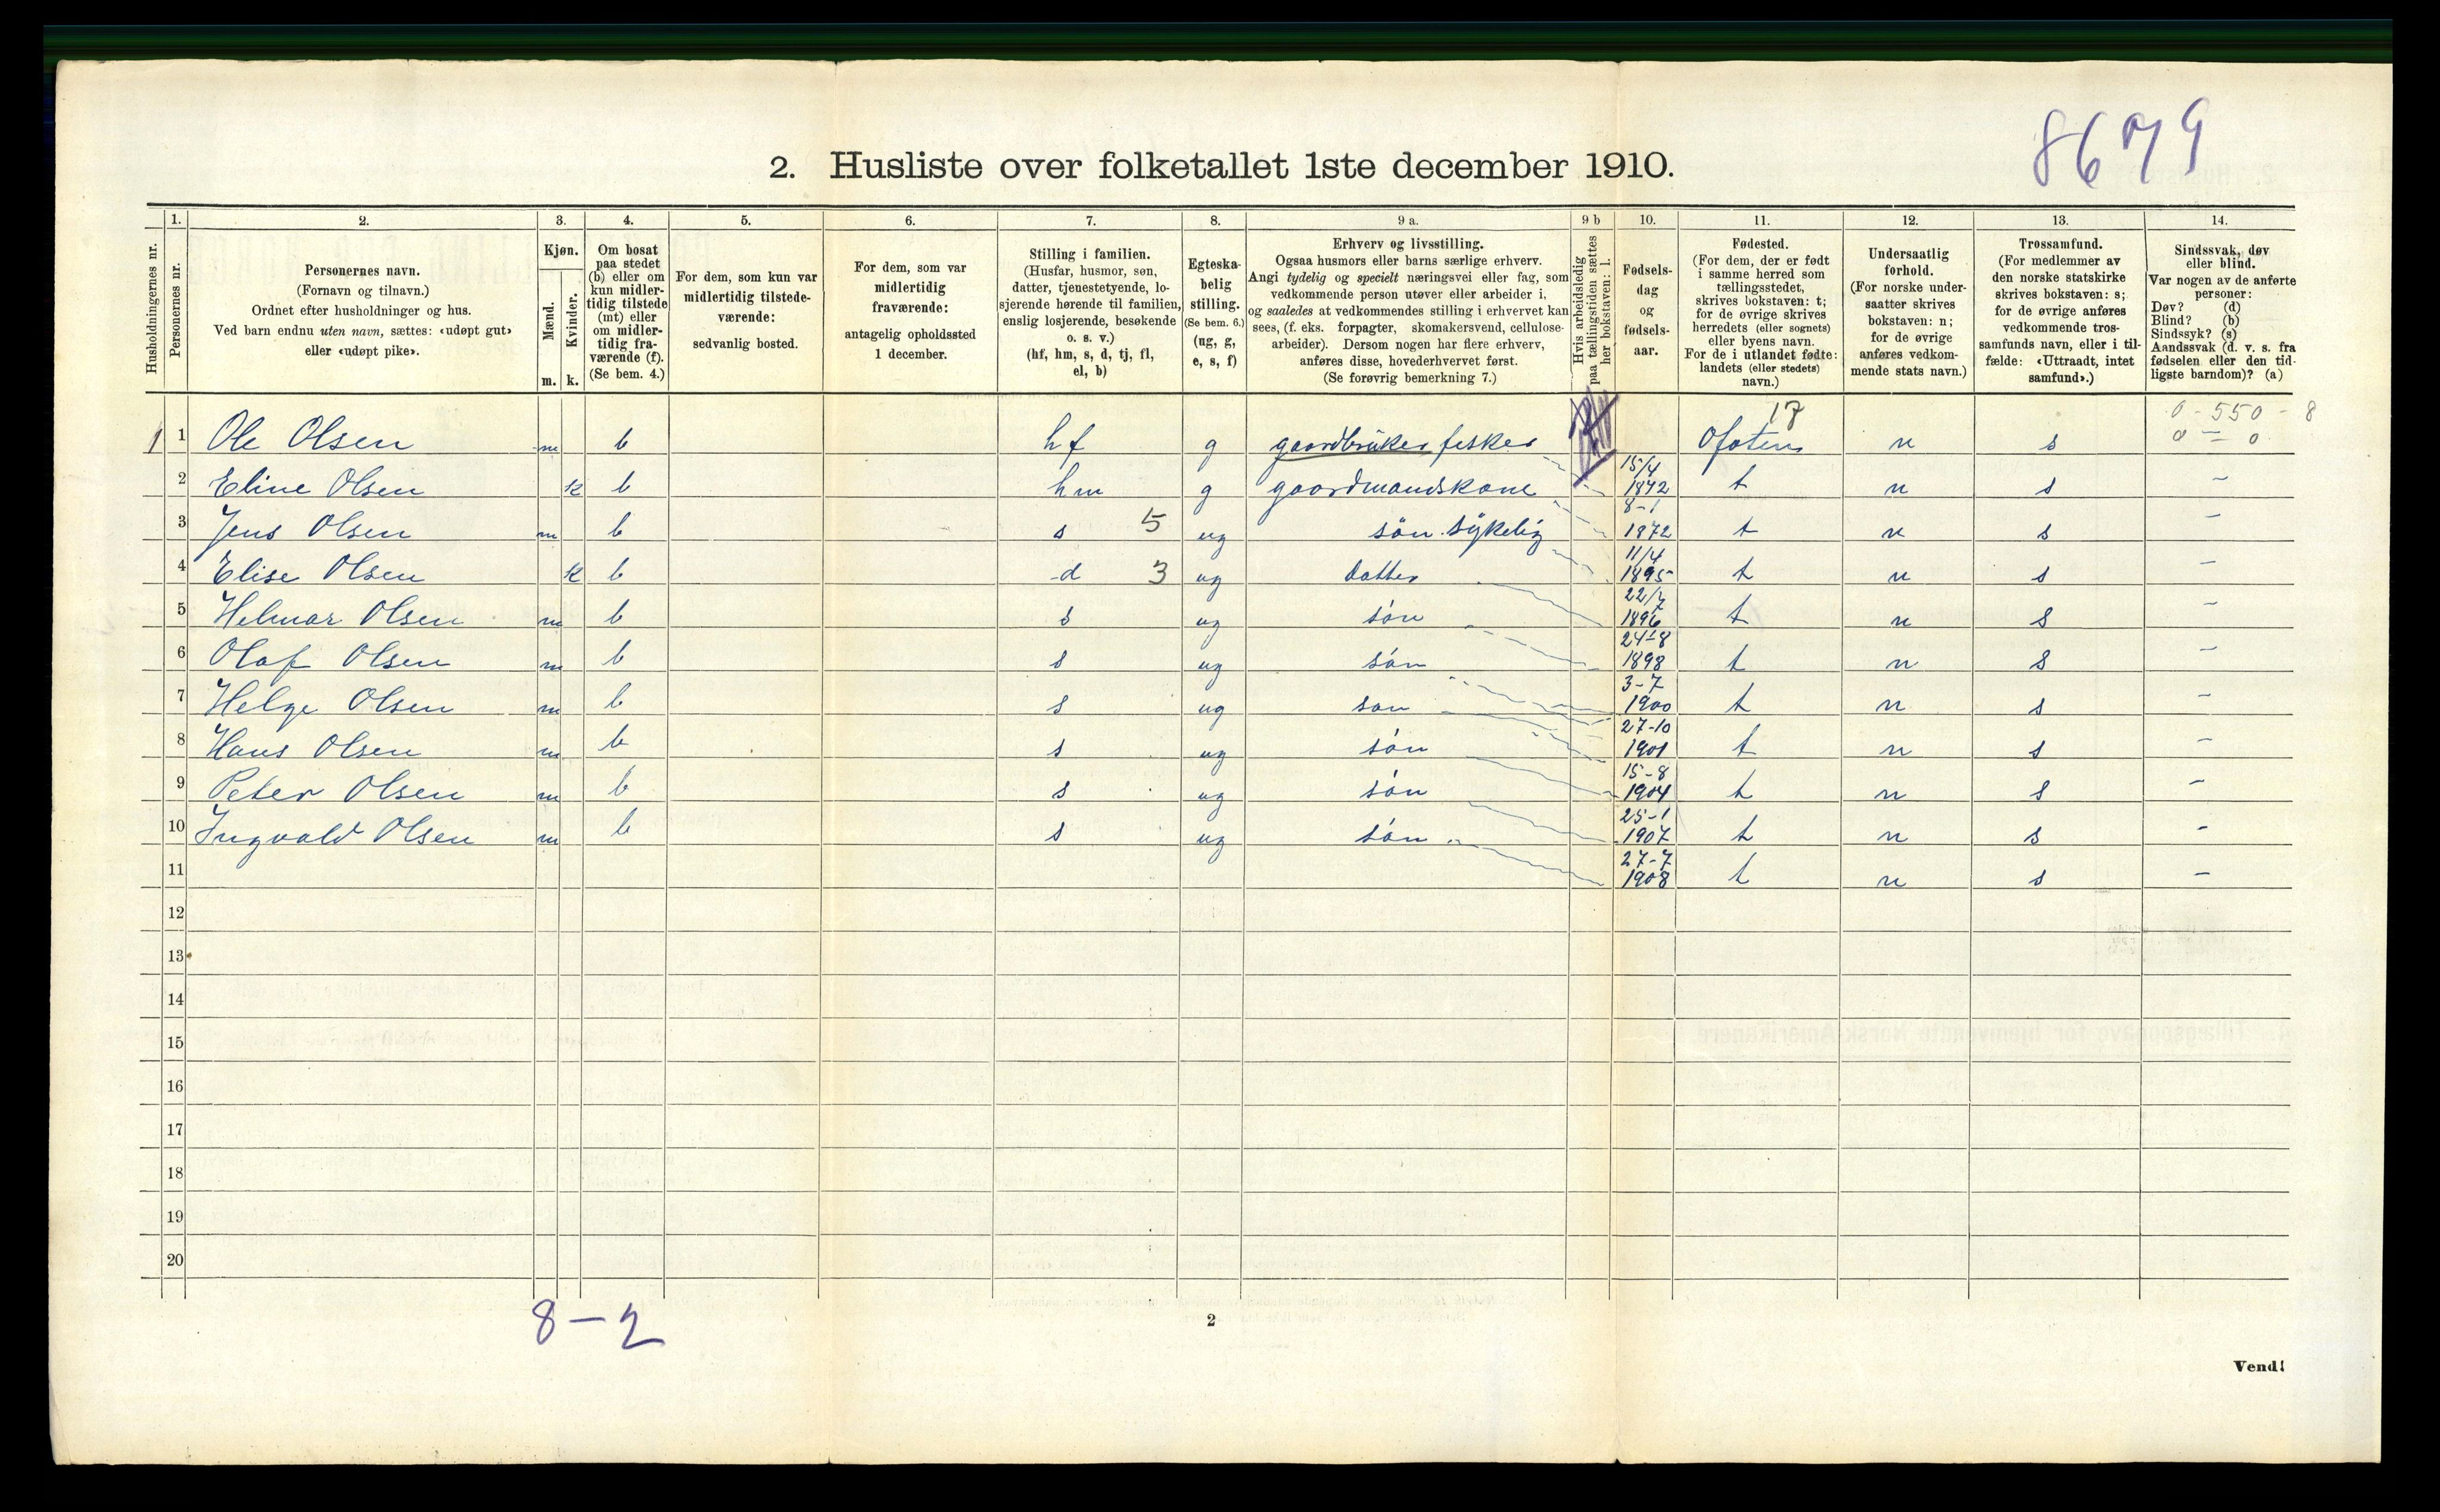 8679
2. Husliste over folketallet 1ste december 1910.
Husholdningernes nr.
1.
Personernes nr.
2.
Personernes navn.
(Fornavn og tilnavn.)
Ordnet efter husholdninger og hus.
Ved barn endnu uten navn, sættes: «udøpt gut»
eller «udøpt pike».
3.
Kjøn.
Mænd.
Kvinder.
m. k.
4.
Om bosat
paa stedet
(b) eller om
kun midler-
tidig tilstede
(mt) eller
om midler-
tidig fra-
værende (f).
(Se bem. 4.)
5.
For dem, som kun var
midlertidig tilstede-
værende:
sedvanlig bosted.
6.
For dem, som var
midlertidig
fraværende:
antagelig opholdssted
1 december.
7.
Stilling i familien.
(Husfar, husmor, søn,
datter, tjenestetyende, lo-
sjerende hørende til familien,
enslig losjerende, besøkende
o. s. v.)
(hf, hm, s, d, tj, fl,
el, b)
8.
Egteska-
belig
stilling.
(Se bem. 6.)
(ug, g,
e, s, f)
9 a.
Erhverv og livsstilling.
Ogsaa husmors eller barns særlige erhverv.
Angi tydelig og specielt næringsvei eller fag, som
vedkommende person utøver eller arbeider i,
og saaledes at vedkommendes stilling i erhvervet kan
sees, (f. eks. forpagter, skomakersvend, cellulose-
arbeider). Dersom nogen har flere erhverv,
anføres disse, hovederhvervet først.
(Se forøvrig bemerkning 7.)
9 b
Hvis arbeidsledig
paa tællingstiden sættes
her bokstaven: l.
10.
Fødsels-
dag
og
fødsels-
aar.
11.
Fødested.
(For dem, der er født
i samme herred som
tællingsstedet,
skrives bokstaven: t;
for de øvrige skrives
herredets (eller sognets)
eller byens navn.
For de i utlandet fødte:
landets (eller stedets)
navn.)
12.
Undersaatlig
forhold.
(For norske under-
saatter skrives
bokstaven: n;
for de øvrige
anføres vedkom-
mende stats navn.)
13.
Trossamfund.
(For medlemmer av
den norske statskirke
skrives bokstaven: s;
for de øvrige anføres
vedkommende tros-
samfunds navn, eller i til-
fælde: «Uttraadt, intet
samfund».)
14.
Sindssvak, døv
eller blind.
Var nogen av de anførte
personer:
Døv? (d)
Blind? (b)
Sindssyk? (s)
Aandssvak (d. v. s. fra
fødselen eller den tid-
ligste barndom)? (a)
17 0 - 550 - 8
1 1 Ole Olsen m b hf g gaardbruker fisker Ofoten n s 0 – 0
2 Eline Olsen k b hm g gaardmandskone 15/4 1842 t n s –
3 Jens Olsen m b s 5 ug sön sykelig 8-1 1872 t n s –
4 Elise Olsen k b d 3 ug datter 11/4 1895 t n s –
5 Helmar Olsen m b s ug sön 22/7 1896 t n s –
6 Olaf Olsen m b s ug sön 24-8 1898 t n s –
7 Helge Olsen m b s ug sön 3-7 1900 t n s –
8 Hans Olsen m b s ug sön 27-10 1901 t n s –
9 Peter Olsen m b s ug sön 15-8 1904 t n s –
10 Ingvald Olsen m b s ug sön 25-1 1907 t n s –
11 27-7 1908 t n s –
12
13
14
15
16
17
18
19
20
8 – 2
2
Vend!